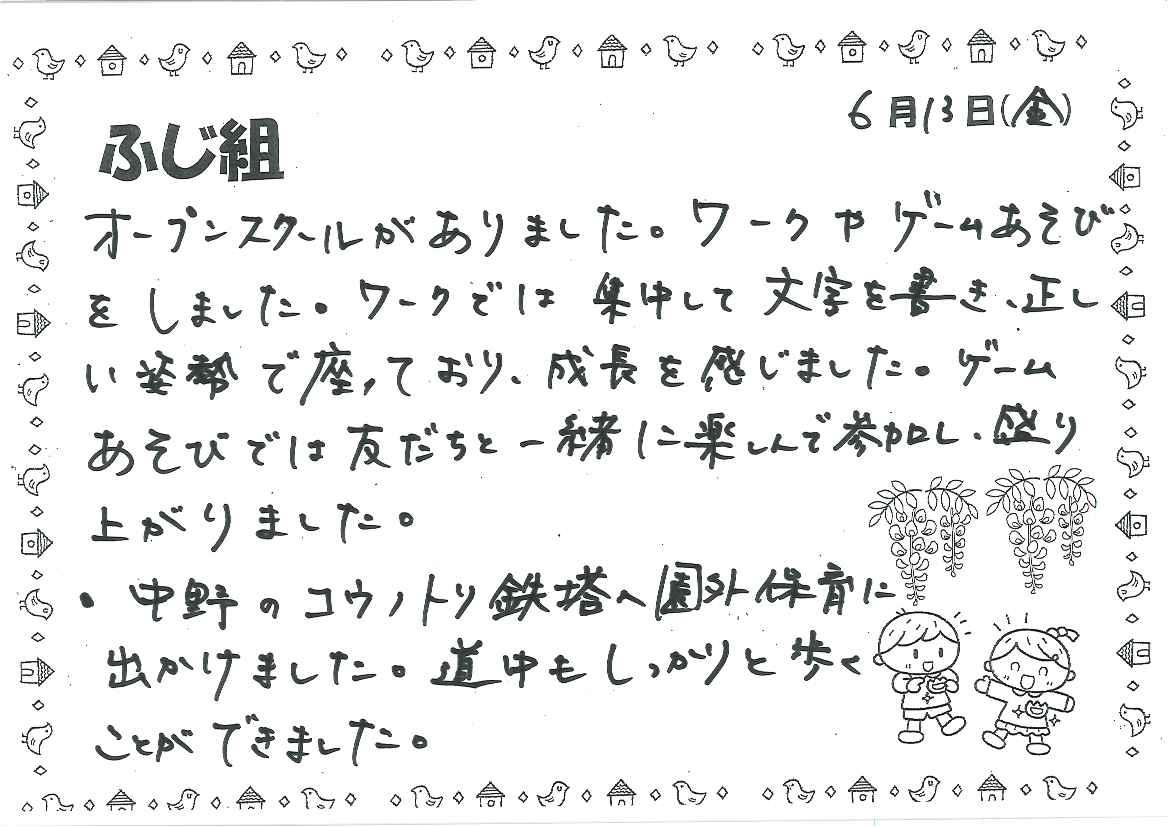 6月13日(金)
ふじ組
オープンスクールがありました。ワークやゲームあそび
をしました。ワークでは集中して文字を書き、正し
い姿勢で座っており、成長を感じました。ゲーム
あそびでは友だちと一緒に楽しんで参加し、盛り
上がりました。
・中野のコウノトリ鉄塔へ園外保育に
出かけました。道中もしっかりと歩く
ことができました。